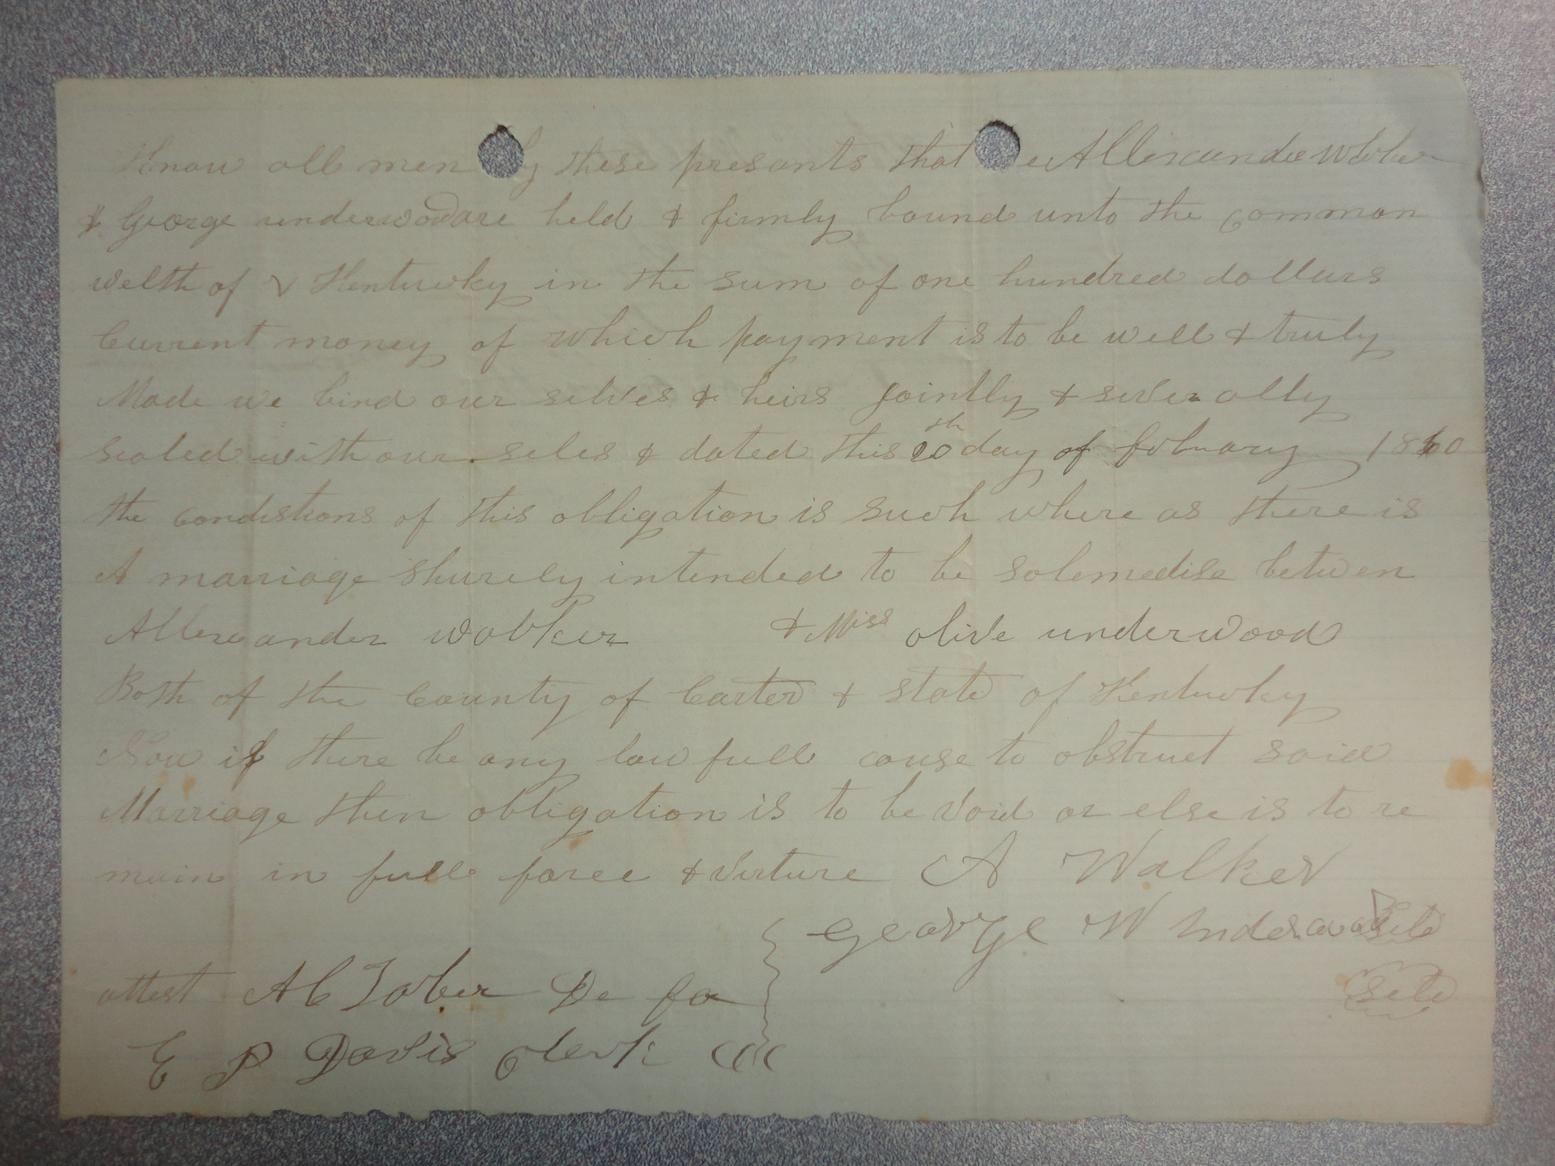 Know all men by these presants that we Allexander Wobker
& George underwood are held & firmly bound unto the common
welth of Kentucky in the sum of one hundred dollars
Current money of which payment is to be well & truly
Made we bind our selves & heirs Jointly & severally
sealed with our seles & dated this 20th day of february 1860
the condistions of this obligation is such where as there is
A marriage shurely intended to be solemedise betwen
Allexander wobker & Miss olive underwood
Both of the County of Carter & state of Kentucky
Now if there be any law full cause to obstruct said
Marriage then obligation is to be void or else is to re
main in full force & virture A Walker
George W Underwood Sele
attest A C Tober De for Sele
E P Davis Clerk CCC